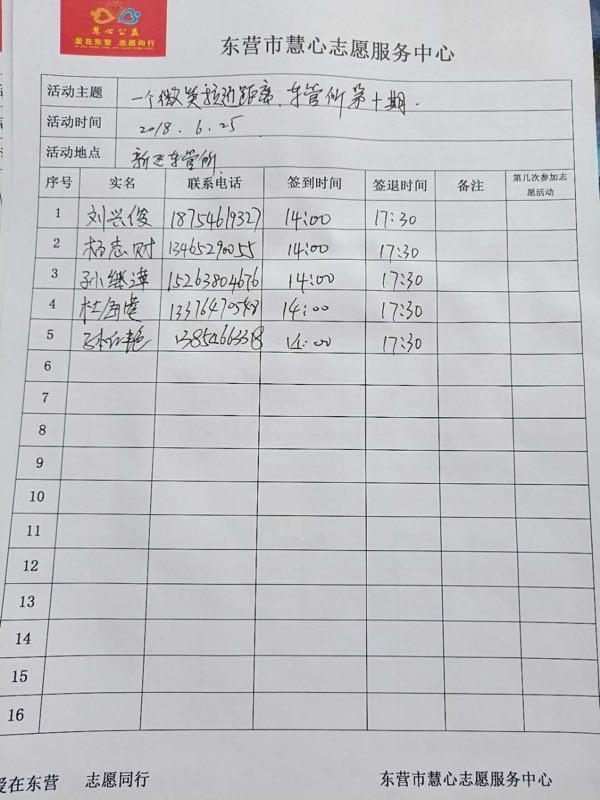 慧心公益
爱在东营 志愿同行
东营市慧心志愿服务中心
活动主题 一个微笑拉近距离、车管所第十期.
活动时间 2018.6.25
活动地点 新区车管所
序号 实名 联系电话 签到时间 签退时间 备注 第几次参加志愿活动
1 刘兴俊 18754619327 14:00 17:30
2 杨志财 13465290055 14:00 17:30
3 孙继泽 15263804676 14:00 17:30
4 杜 14:00 17:30
5 14:00 17:30
6
7
8
9
10
11
12
13
14
15
16
爱在东营 志愿同行 东营市慧心志愿服务中心